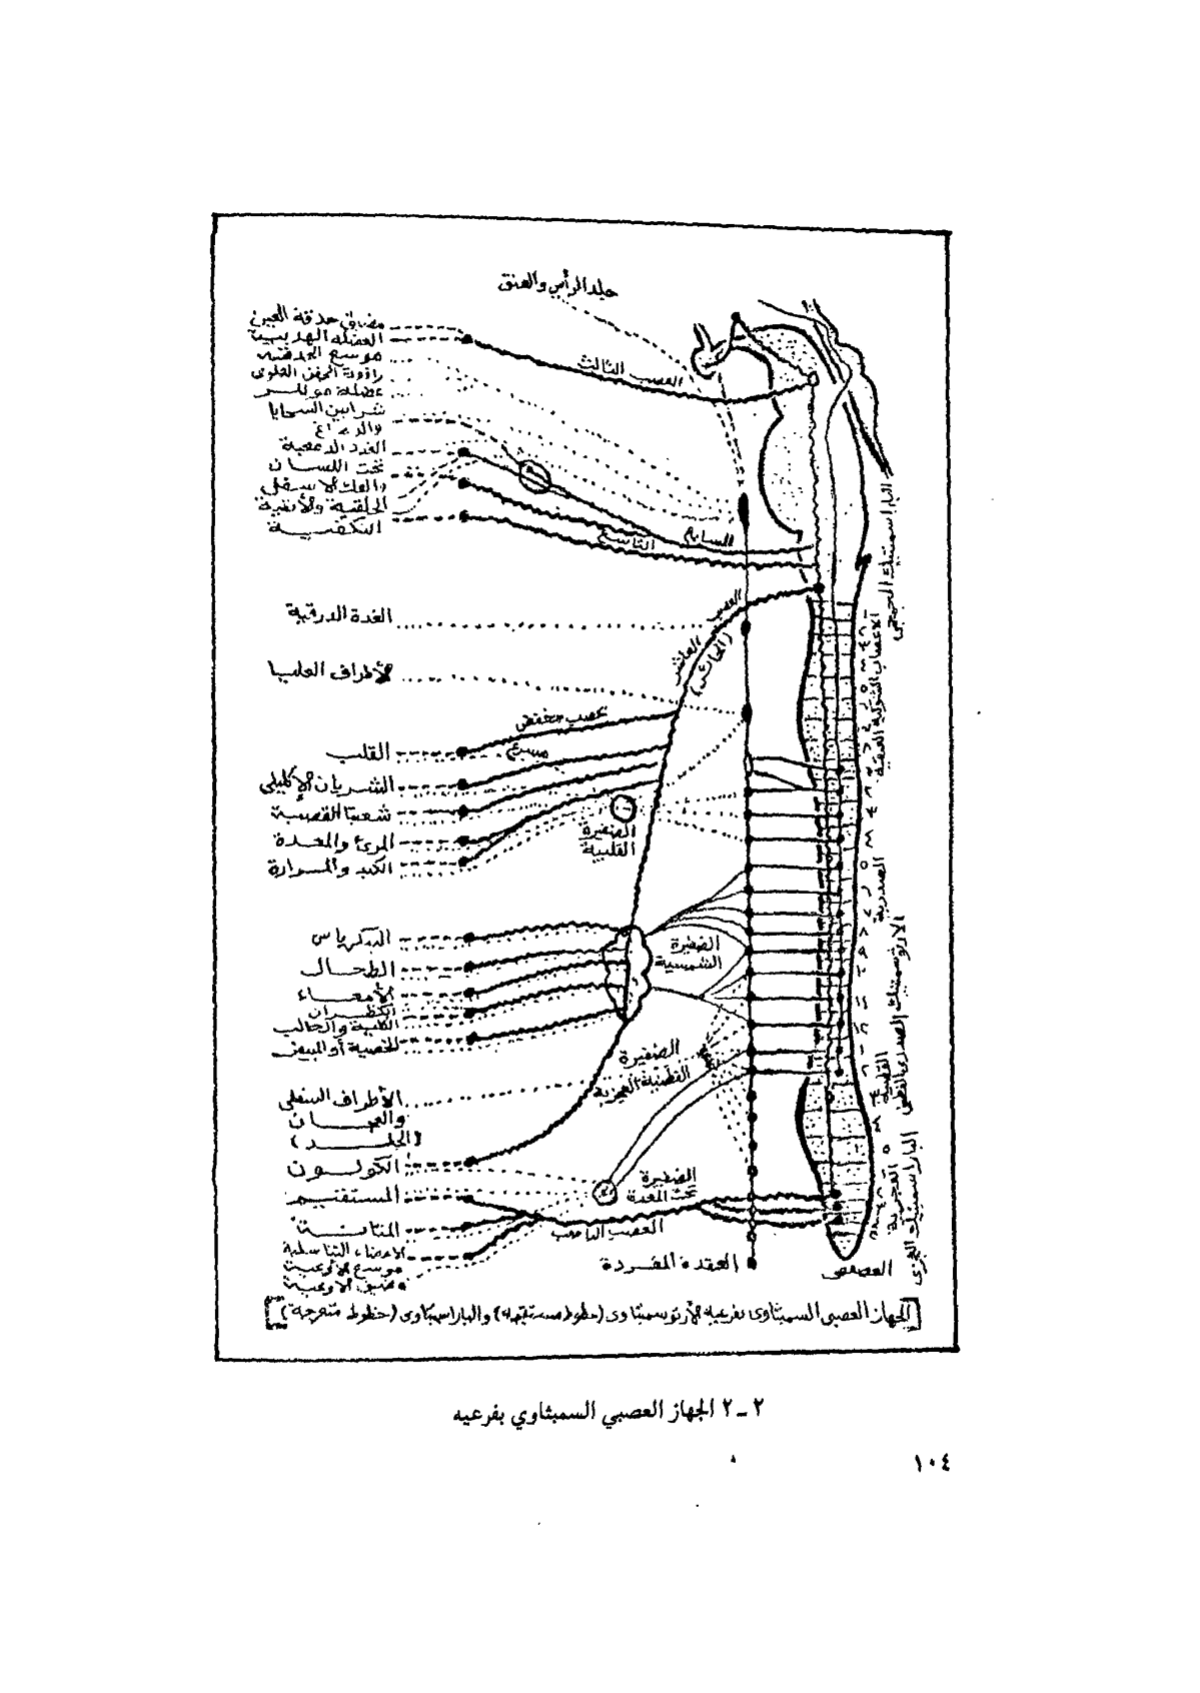 جلد الرأس والعنق
مضيق حدقة العين
العضلة الهدبية
موسع الحدقة
رافعة الجفن العلوي
عضلة موللر
شرايين السحايا
والدماغ
الغدد الدمعية
تحت اللسان
والفك الاسفلي
الحلقية والأنفية
النكفية
العصب الثالث
السابع
التاسع
الغدة الدرقية
الأطراف العليا
العصب
العاشر
(الحائر)
عصب مخفض
مسرع
القلب
الشريان الإكليلي
شعبتا القصبة
المرئ والمعدة
الكبد والمرارة
الضفيرة
القلبية
البنكرياس
الطحال
الأمعاء
الكظران
الكلية والحالب
الخصية أو المبيض
الضفيرة
الشمسية
الضفيرة
القطنية العجزية
الأطراف السفلى
والعجان
(الجلد)
الكولون
المستقيم
المثانة
الاعضاء التناسلية
موسع الأوعية
مضيق الاوعية
الضفيرة
تحت المعدة
العصب الناصب
العقدة المفردة
العصعص
الباراسمبتيك القحفي
الاعصاب الشوكية العنقية
الصدرية
الارتوسمبتيك الصدري القطني
القطنية
العجزية
الباراسمبتيك العجزي
[الجهاز العصبي السمبثاوى بفرعيه الأرتوسمبثاوى (خطوط مستقيمة) والباراسمبثاوى (خطوط متعرجة)]
٢ ـ ٢ الجهاز العصبي السمبثاوي بفرعيه
١٠٤